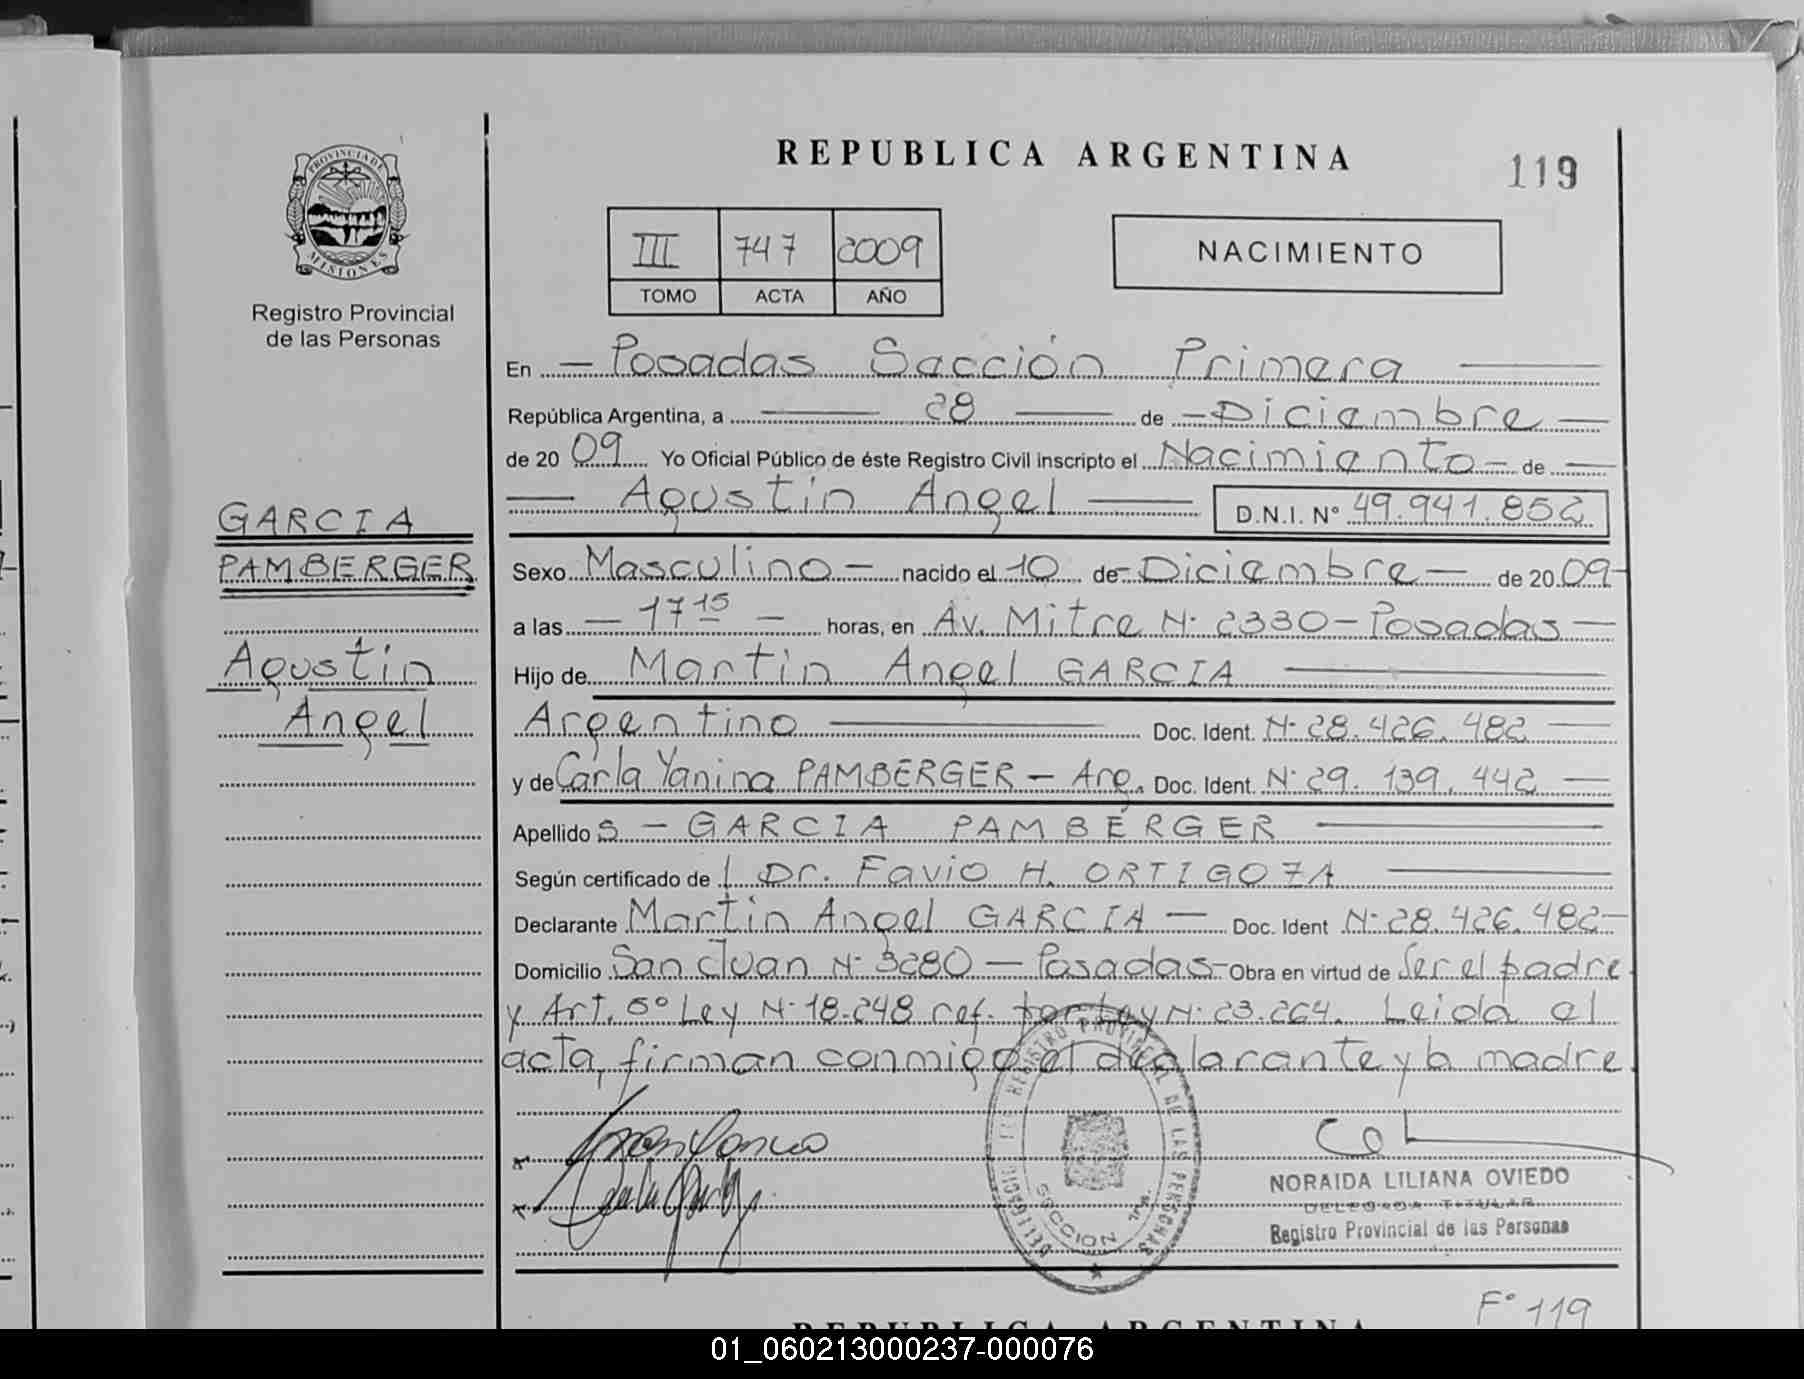 REPUBLICA ARGENTINA
119
PROVINCIA DE MISIONES
Registro Provincial
de las Personas
III 747 2009
TOMO ACTA AÑO
NACIMIENTO
En — Posadas Sección Primera —
República Argentina, a — 28 — de — Diciembre —
de 20 09 Yo Oficial Público de éste Registro Civil inscripto el Nacimiento — de —
— Agustin Angel — D.N.I. N° 49.941.852
GARCIA
PAMBERGER
Agustin
Angel
Sexo Masculino — nacido el 10 de — Diciembre — de 20 09 -
a las — 17 15 — horas, en Av. Mitre N· 2330 - Posadas —
Hijo de Martin Angel GARCIA —
Argentino — Doc. Ident. N· 28.426.482 —
y de Carla Yanina PAMBERGER — Arg. Doc. Ident. N· 29.139.442 —
Apellido s — GARCIA PAMBERGER —
Según certificado de l Dr. Favio H. ORTIGOZA —
Declarante Martin Angel GARCIA — Doc. Ident N· 28.426.482 -
Domicilio San Juan N· 3280 — Posadas - Obra en virtud de Ser el padre
y Art. 5° Ley N· 18.248 ref. por Ley N· 23.264. Leida el
acta, firman conmigo el declarante y la madre.
REGISTRO PROVINCIAL DE LAS PERSONAS
SECCION 1ra.
NORAIDA LILIANA OVIEDO
DELEGADA TITULAR
Registro Provincial de las Personas
F° 119
REPUBLICA ARGENTINA
01_060213000237-000076